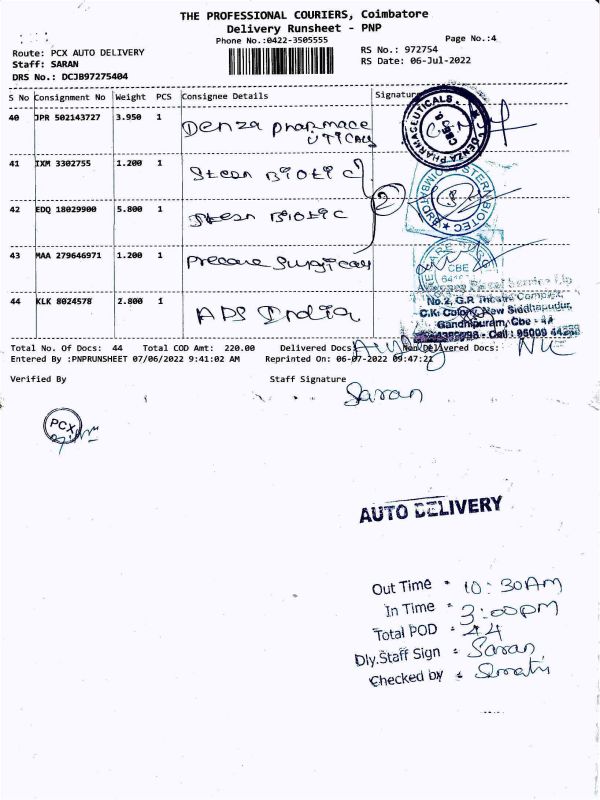 THE PROFESSIONAL COURIERS, Coimbatore
Delivery Runsheet - PNP
Phone No.:0422-3505555 Page No.:4
Route: PCX AUTO DELIVERY RS No.: 972754
Staff: SARAN RS Date: 06-Jul-2022
DRS No.: DCJB97275404
S No Consignment No Weight PCS Consignee Details Signature
40 JPR 502143727 3.950 1 Denza pharmace
UTICALS
41 IXM 3302755 1.200 1 Steon BIOTIC
42 EDQ 18029900 5.800 1 Steon BIOTIC
43 MAA 279646971 1.200 1 precare Surgicals
44 KLK 8024578 2.800 1 APS India
DENZA PHARMACEUTICALS
CBE
2
CBE
No.2, G.P. Theatre Complex,
C.K. Colony, New Siddhapudur,
Gandhipuram, Cbe - 44
Total No. Of Docs: 44 Total COD Amt: 220.00 Delivered Docs: Non Delivered Docs: Nil
Entered By :PNPRUNSHEET 07/06/2022 9:41:02 AM Reprinted On: 06-07-2022 09:47:21
Verified By Staff Signature
Saran
PCX
AUTO DELIVERY
Out Time - 10:30AM
In Time - 3:00PM
Total POD - 44
Dly.Staff Sign - Saran
Checked by -